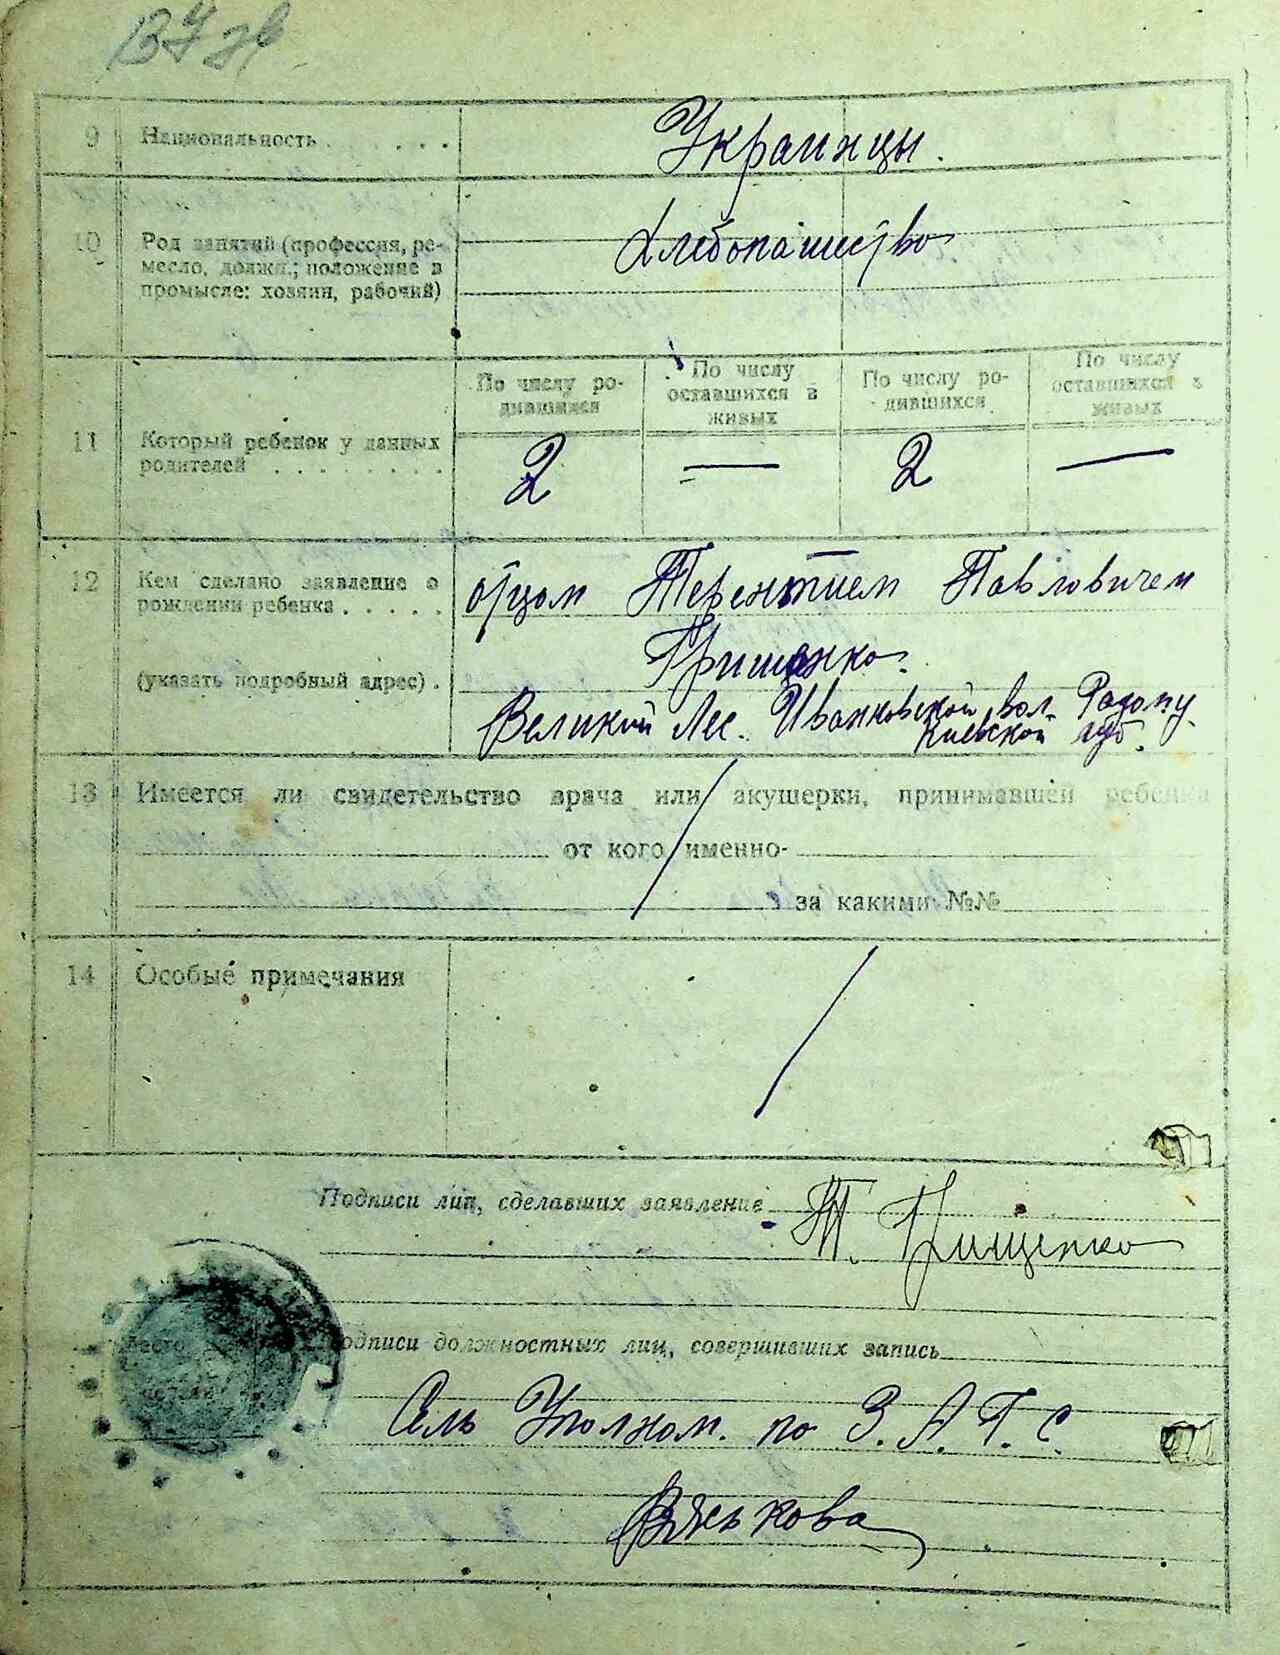 9 Национальность Украинцы.
10 Род занятий (профессия, ре-
месло, должн.; положение в
промысле: хозяин, рабочий)
Хлебопашество
По числу ро-
дившихся
По числу
оставшихся в
живых
По числу ро-
дившихся
По числу
оставшихся в
живых
11 Который ребенок у данных
родителей
2 — 2 —
12 Кем сделано заявление о
рождении ребенка
(указать подробный адрес).
отцом Терентием Павловичем
Грищенко.
Великий Лес. Иванковской вол. Радому.
Киевской губ.
13 Имеется ли свидетельство врача или акушерки, принимавшей ребенка
от кого именно-
за какими №№
14 Особые примечания
Подписи лиц, сделавших заявление
Т. Грищенко
Место
Подписи должностных лиц, совершивших запись
Сель Уполном. по З.А.Г.С.